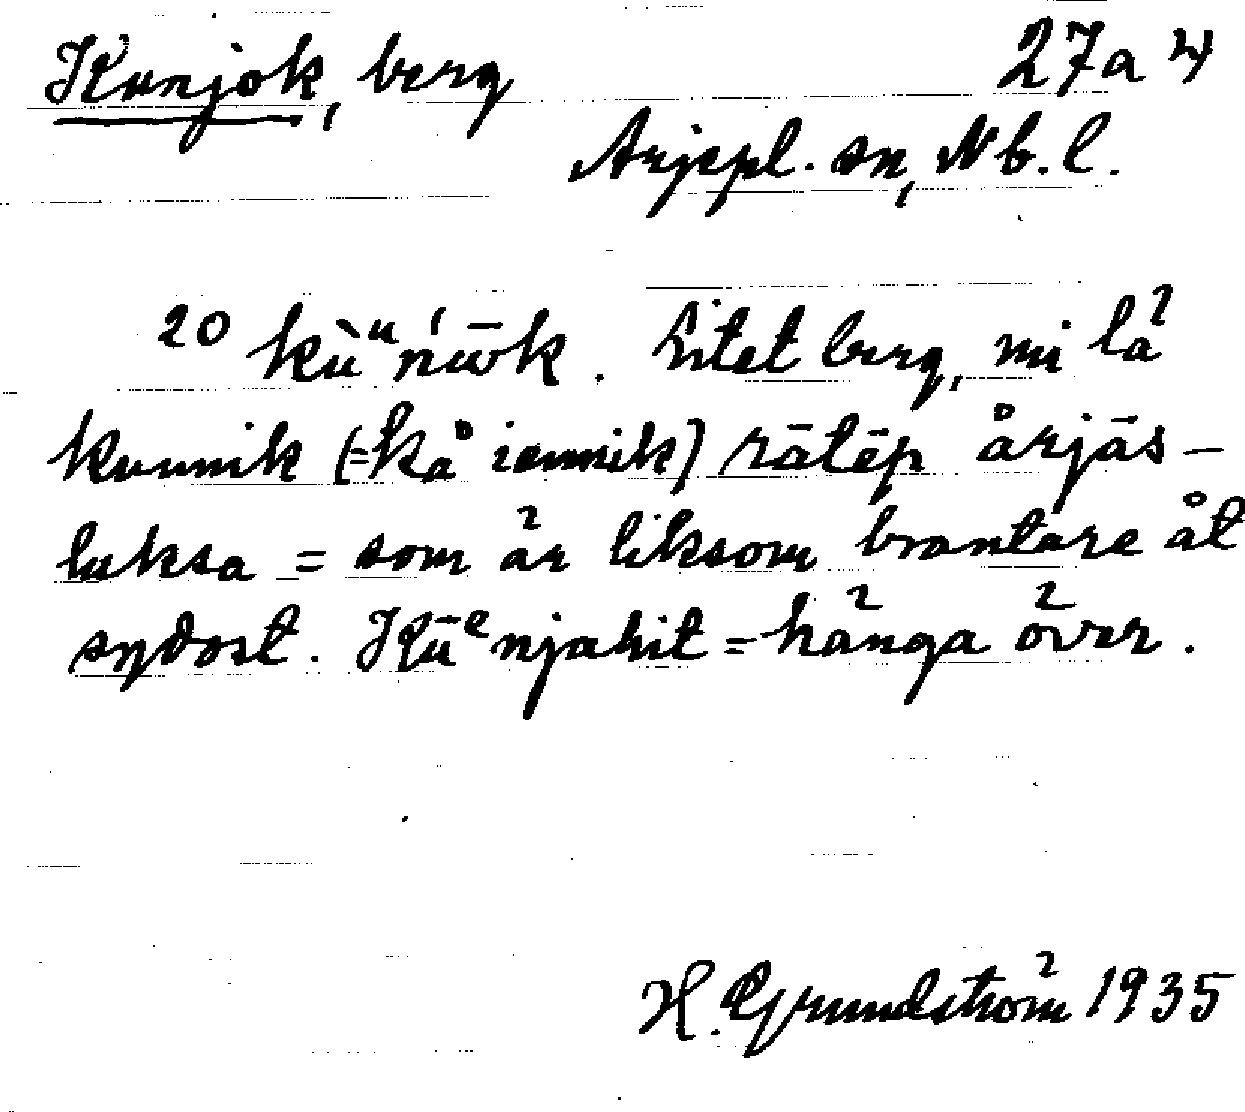 Kunjok, berg 27a 4
Arjepl. sn, Nb. l.
20 kùᵘńūo̅k. Litet berg, mi lä
kuunik (=kå iemnik) rātēp årjās-
luksa = som är liksom brantare åt
sydost. Kūᵉnjahit = hänga över.
H. Grundström 1935